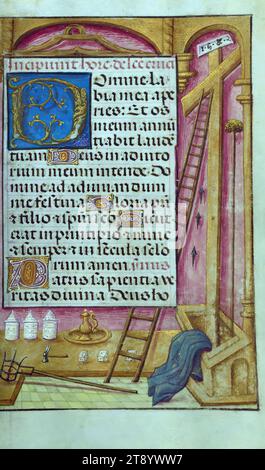 Incipiunt hore de sce cruci
Domine la
bia mea ape
ries: Et os
meum annū
tiabit laudē
tuam Deus in adiuto
rium meum intende. Do
mine ad adiuuandum
me festina Gloria
& filio & spui sco Sicut
erat in principio & nunc
& semper & in secula seclo
rum amen. ymnus
Patris sapientia ve
ritas diuina Deus ho
alamy - 2T8YWW7